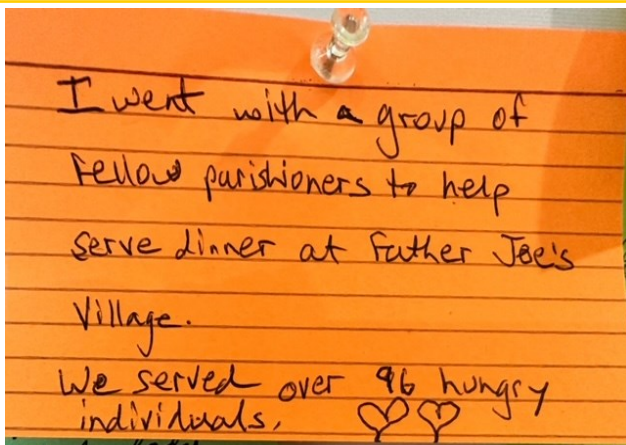 I went with a group of
Fellow parishioners to help
serve dinner at Father Joe's
Village.
We served over 96 hungry
individuals.